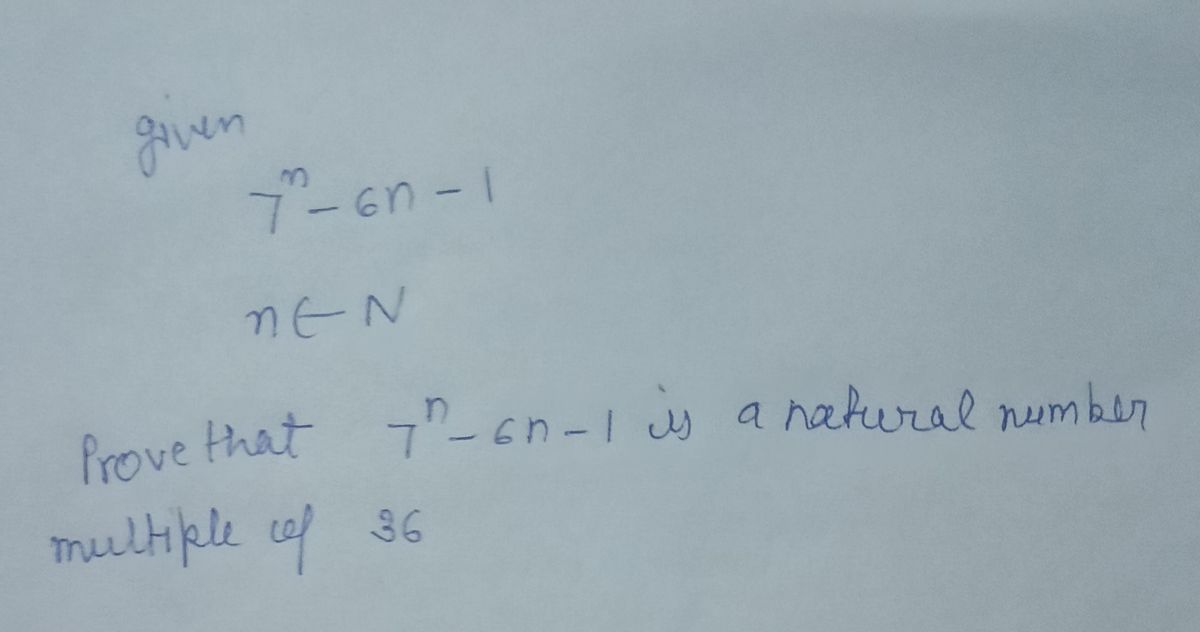 given
7ⁿ - 6n - 1
n ∈ N
Prove that 7ⁿ - 6n - 1 is a natural number
multiple of 36